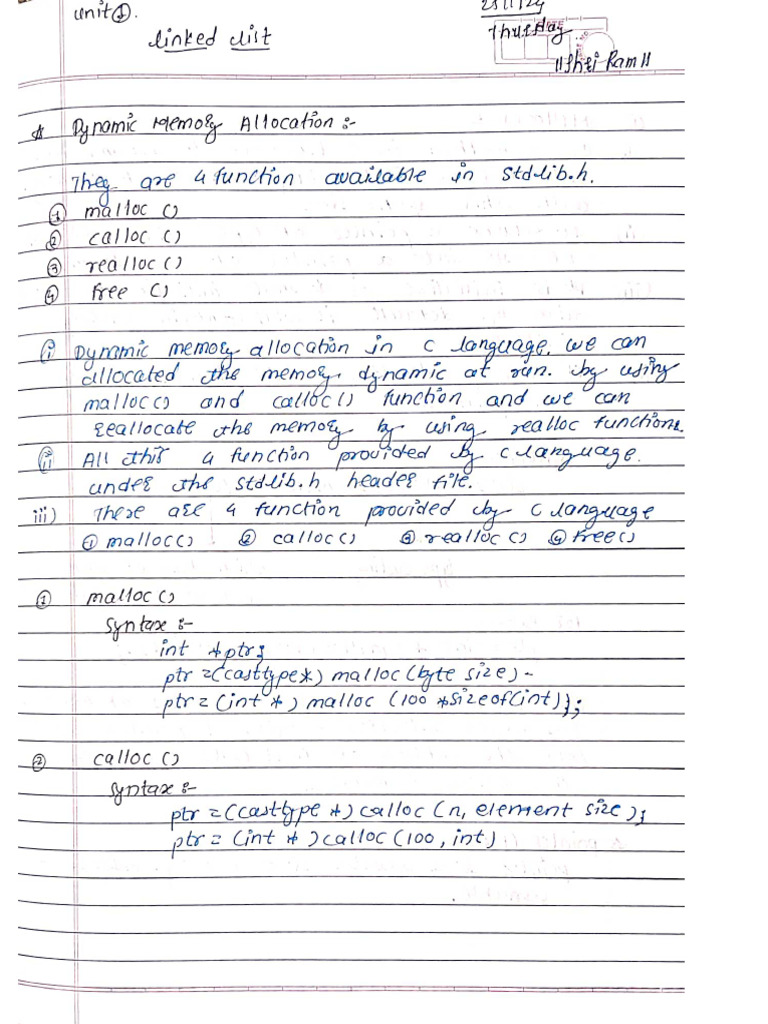 unit ①.
Thursday
linked list
||Shri Ram||
* Dynamic Memory Allocation :-
They are 4 function available in stdlib.h.
① malloc ()
② calloc ()
③ realloc ()
④ free ()
(i) Dynamic memory allocation in c language. we can
allocated the memory dynamic at run. by using
malloc() and calloc() function and we can
reallocate the memory by using realloc functions.
(ii) All this 4 function provided by c language.
under the stdlib.h header file.
iii) There are 4 function provided by c language
① malloc() ② calloc() ③ realloc () ④ free()
① malloc ()
syntax :-
int *ptr;
ptr = (casttype*) malloc (byte size) -
ptr = (int *) malloc (100 *sizeof(int)};
② calloc ()
syntax :-
ptr = (casttype *) calloc (n, element size);
ptr = (int *) calloc (100, int)